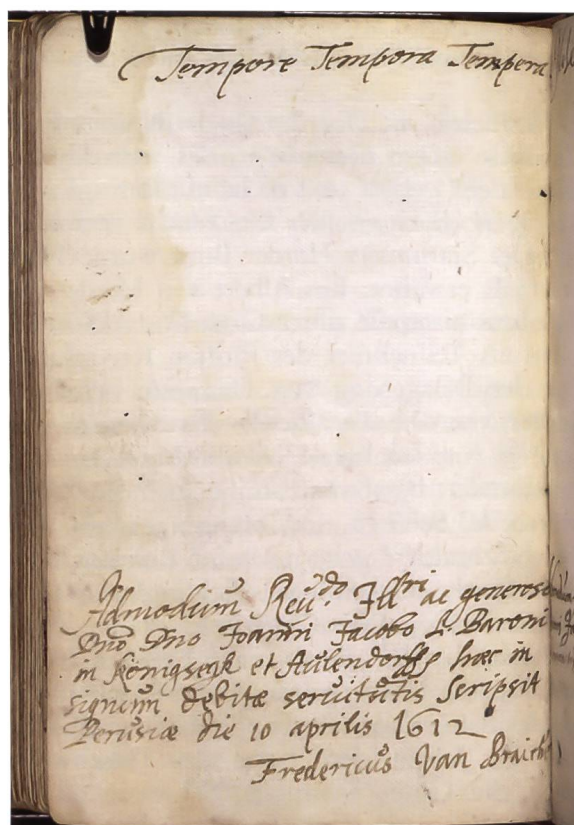 Tempore Tempora Tempera
Admodum Reu.do Illri ac generoso
Dno Dno Joanni Jacobo L. Baroni
in Königsegk et Aulendorff hæc in
signum debitæ seruitutis scripsit
Perusiæ die 10 aprilis 1612
Fredericus Van